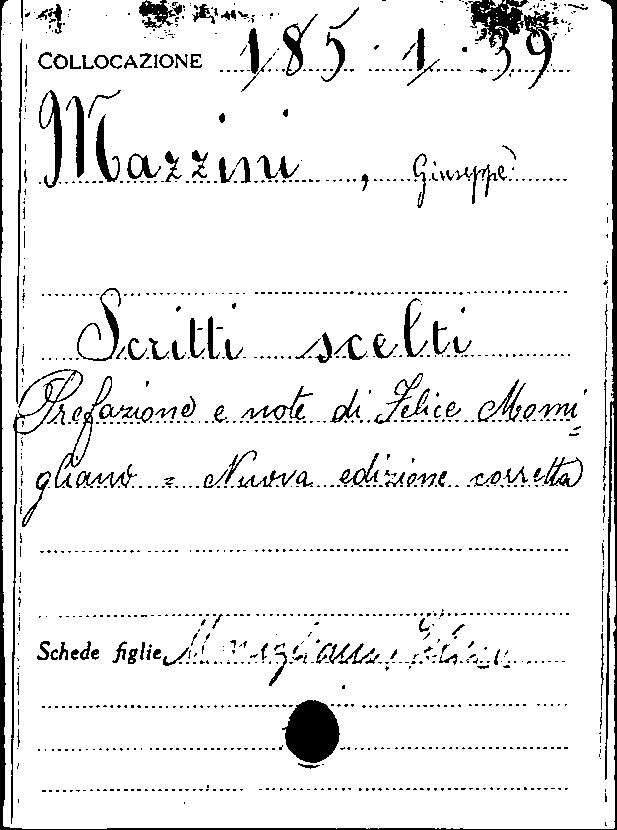 COLLOCAZIONE 185.1.39
Mazzini, Giuseppe
Scritti scelti
Prefazione e note di Felice Momi=
gliano = Nuova edizione corretta
Schede figlie Momigliano, Felice